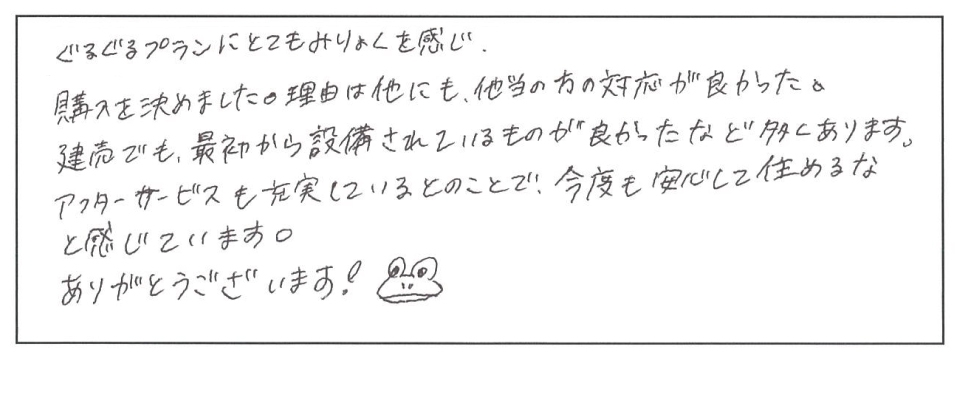 ぐるぐるプランにとてもみりょくを感じ、
購入を決めました。理由は他にも、他当の方の対応が良かった。
建売でも、最初から設備されているものが良かったなど多くあります。
アフターサービスも充実しているとのことで、今度も安心して住めるな
と感じています。
ありがとうございます!